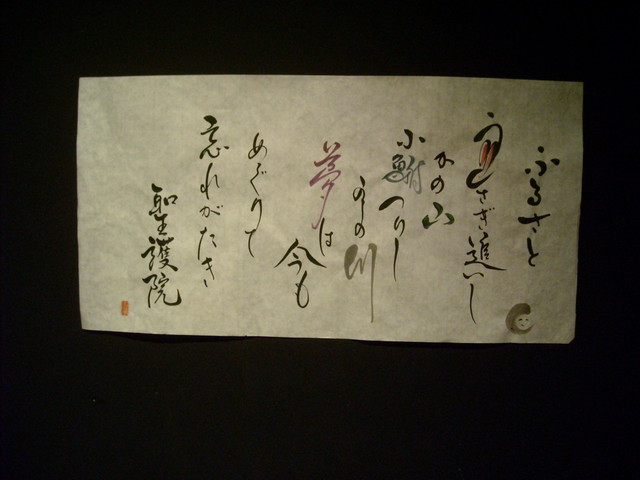 ふるさと
うさぎ追いし
かの山
小鮒つりし
かの川
夢は
今も
めぐりて
忘れがたき
聖護院